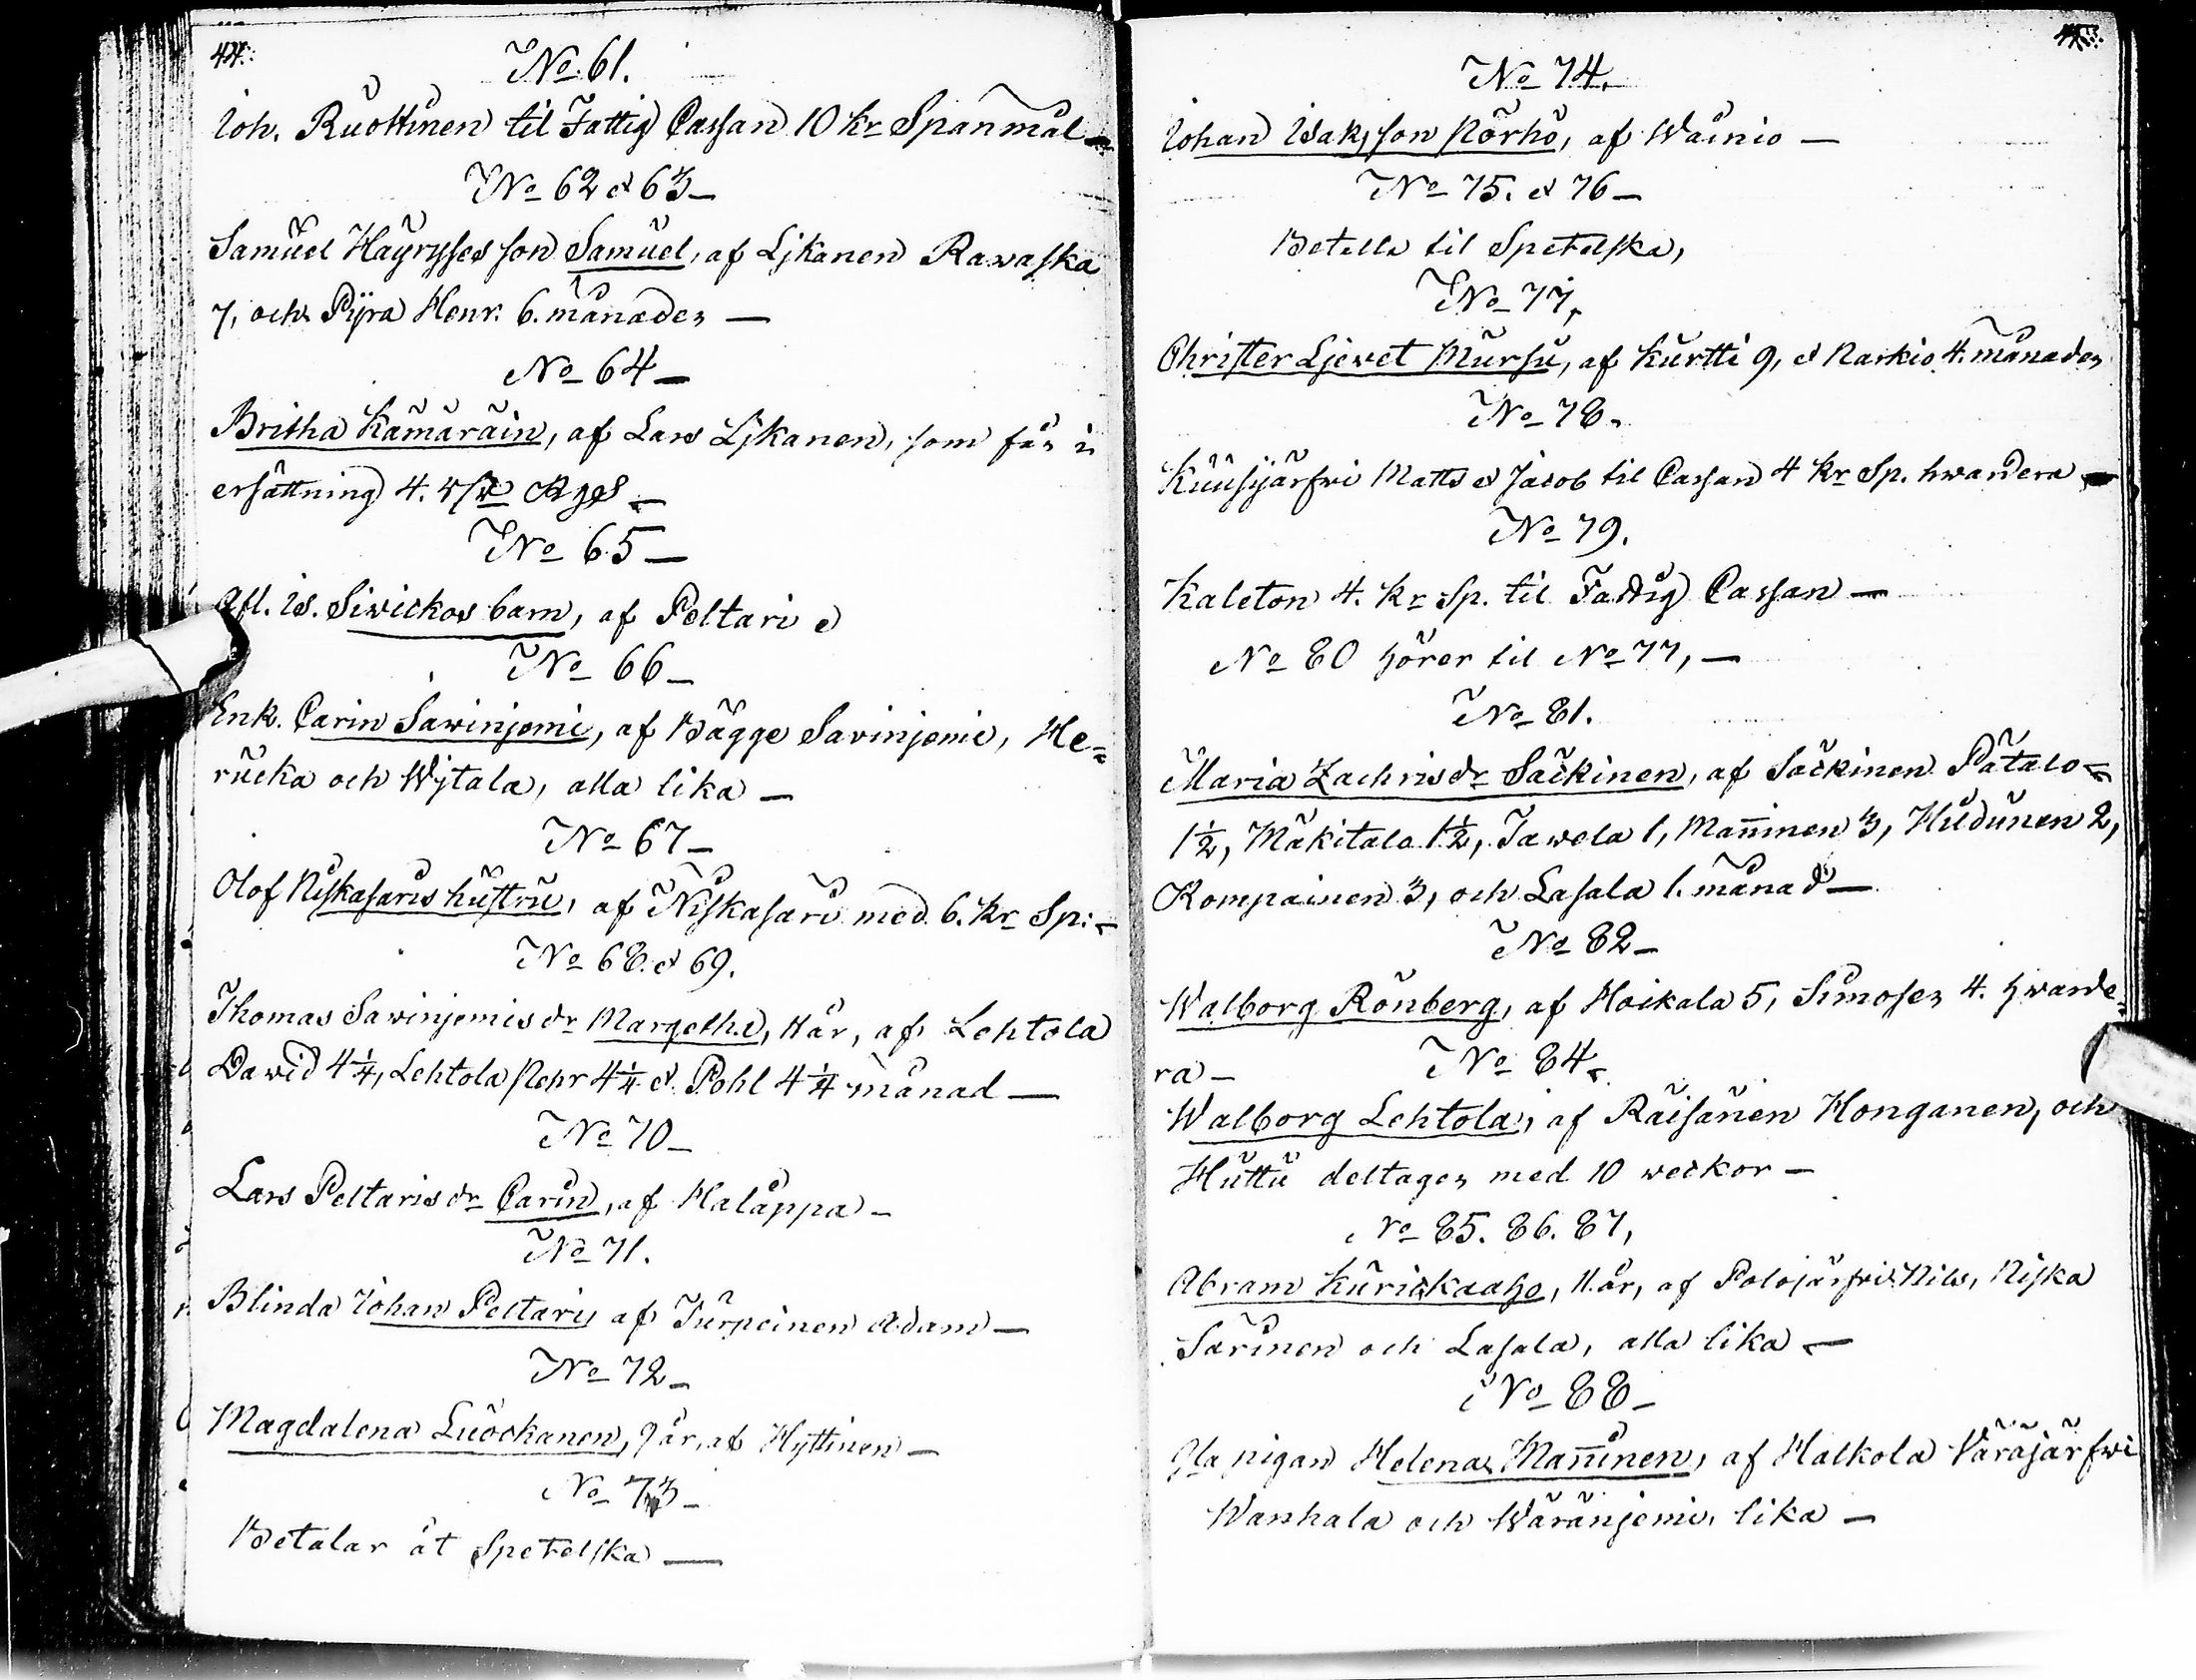 44.
No 61.
Joh. Ruottinen til Fattig Cassan 10 kr Spanmål
No 62 & 63
Samuel Häyrysses son Samuel, af Ljkanen Rawaska
7, och Pyra Henr. 6. månader
No 64
Britha Kämäräin, af Lars Ljkanen, som får i
ersättning 4.
No 65
Afl. Is. Siwickos barn, af Peltari
No 66
Enk. Carin Sawinjemi, af Bägge Savinjemi, He-
rucka och Wjtala, alla lika
No 67
Olof Niskasaris hustru, af Niskasari med 6. kr Sp:
No 68. & 69.
Thomas Sawinjemis dr Margetha, 11 år, af Lehtola
Dawid 4¼, Lehtola Pehr 4¼ & Pohl 4¼ månad
No 70
Lars Peltaris dr Carin, af Halappa
No 71.
Blinda Johan Peltari, af Turpeinen Adam
No 72
Magdalena Luockanen, 9 år, af Hyttinen
No 73
Betalar åt Spetelska
No 74.
Johan Isaksson Pörhö, af Wainio
No 75. & 76
Betalla til Spetelska,
No 77.
Christer Ljevet Mursu, af Kurtti 9, & Narkio 4. månader
No 78.
Kuusijärfwi Matts & Jacob til Cassan 4 kr Sp. hwardera
No 79.
Kaleton 4. kr Sp. til Fattig Cassan
No 80 hörer til No 77,
No 81.
Maria Zachrisdr Säckinen, af Säckinen Pätalo
1½, Mäkitalo 1½, Tawela 1, Man̄inen 3, Hudunen 2,
Kompainen 3, och Lasala 1. månad
No 82
Walborg Rönberg, af Hoikala 5, Simoses 4. hwarde-
ra
No 84.
Walborg Lehtola, af Räisänen Honganen, och
Huttu deltager med 10 weckor
No 85. 86. 87,
Abram Kurickaaho, 11. år, af Polojärfwi Nils, Niska
Sarinen och Lasala, alla lika
No 88
Gla pigan Helena Man̄inen, af Halkola Väräjärfwi
Wanhala och Wäränjemi, lika